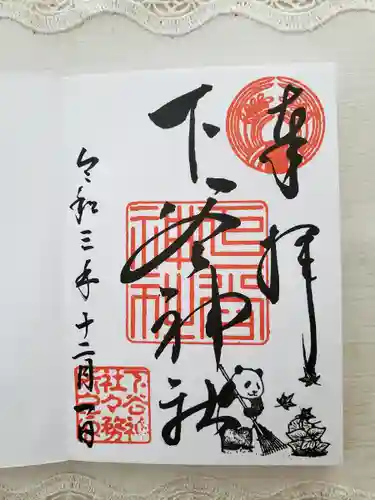 奉拝
下谷神社
令和三年十二月一日
下谷神社
下谷神
社々務
所之印